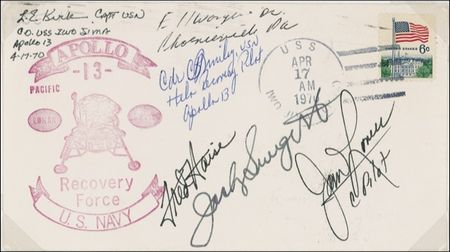 L.E. Kirk - Capt USN
C.O. USS IWO SIMA
Apollo 13
4-17-70
Phoenixville Pa
Cdr C Smiley, USN
Helo Recovery Pilot
Apollo 13
USS
APR
17
AM
1970
IWO
6c
APOLLO
-13-
PACIFIC
LUNAR
Recovery
Force
U.S. NAVY
Fred Haise
Jack Swigert
Jim Lovell